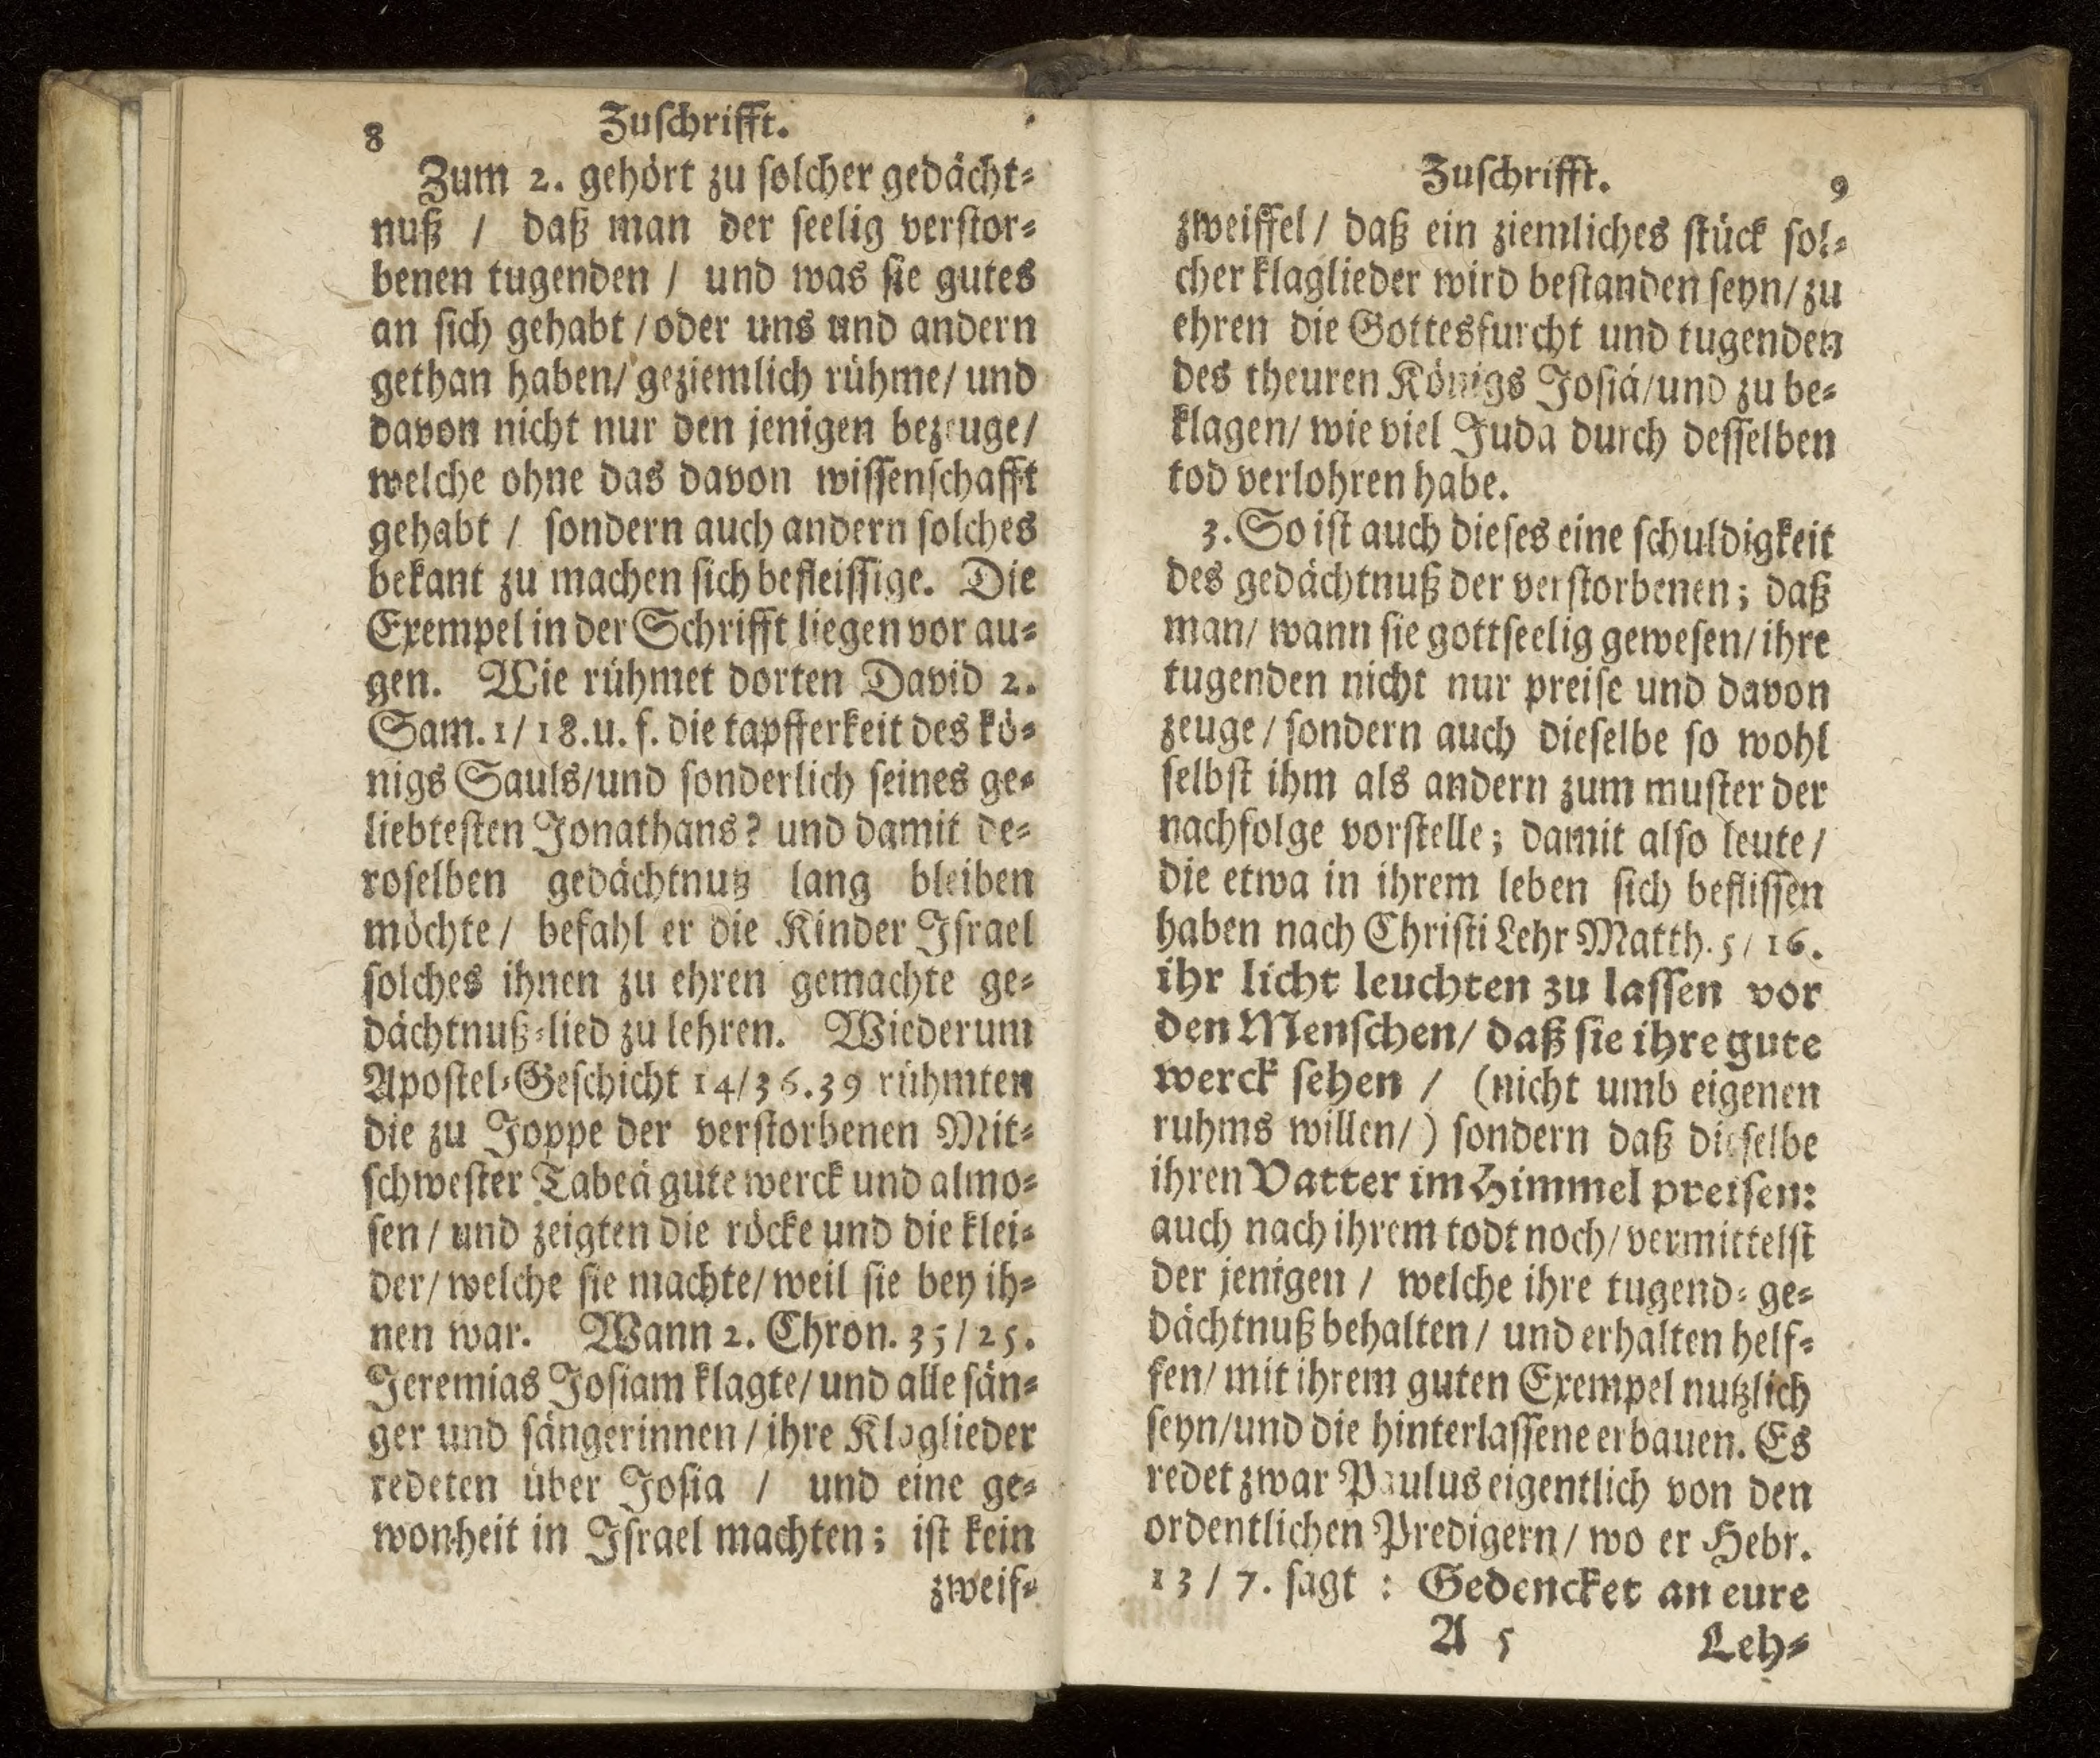 8 Zuſchrifft.
Zum 2. gehört zu ſolcher gedächt⸗
nuß / daß man der ſeelig verſtor⸗
benen tugenden / und was ſie gutes
an ſich gehabt / oder uns und andern
gethan haben / geziemlich rühme / und
davon nicht nur den jenigen bezeuge /
welche ohne das davon wiſſenſchafft
gehabt / ſondern auch andern ſolches
bekant zu machen ſich befleiſſige. Die
Exempel in der Schrifft liegen vor au⸗
gen. Wie rühmet dorten David 2.
Sam. 1 / 18. u. f. die tapfferkeit des kö⸗
nigs Sauls / und ſonderlich ſeines ge⸗
liebteſten Jonathans? und damit de⸗
roſelben gedächtnuß lang bleiben
möchte / befahl er die Kinder Iſrael
ſolches ihnen zu ehren gemachte ge⸗
dächtnuß⸗lied zu lehren. Wiederum
Apoſtel⸗Geſchicht 14 / 36. 39 rühmten
die zu Joppe der verſtorbenen Mit⸗
ſchweſter Tabeä gute werck und almo⸗
ſen / und zeigten die röcke und die klei⸗
der / welche ſie machte / weil ſie bey ih⸗
nen war. Wann 2. Chron. 35 / 25.
Jeremias Joſiam klagte / und alle ſän⸗
ger und ſängerinnen / ihre Klaglieder
redeten über Joſia / und eine ge⸗
wonheit in Iſrael machten; iſt kein
zweif⸗
Zuſchrifft. 9
zweiffel / daß ein ziemliches ſtück ſol⸗
cher klaglieder wird beſtanden ſeyn / zu
ehren die Gottesfurcht und tugenden
des theuren Königs Joſiä / und zu be⸗
klagen / wie viel Juda durch deſſelben
tod verlohren habe.
3. So iſt auch dieſes eine ſchuldigkeit
des gedächtnuß der verſtorbenen; daß
man / wann ſie gottſeelig geweſen / ihre
tugenden nicht nur preiſe und davon
zeuge / ſondern auch dieſelbe ſo wohl
ſelbſt ihm als andern zum muſter der
nachfolge vorſtelle; damit alſo leute /
die etwa in ihrem leben ſich befliſſen
haben nach Chriſti Lehr Matth. 5 / 16.
ihr licht leuchten zu laſſen vor
den Menſchen / daß ſie ihre gute
werck ſehen / (nicht umb eigenen
ruhms willen /) ſondern daß dieſelbe
ihren Vatter im Himmel preiſen:
auch nach ihrem todt noch / vermittelſt
der jenigen / welche ihre tugend⸗ge⸗
dächtnuß behalten / und erhalten helf⸗
fen / mit ihrem guten Exempel nutzlich
ſeyn / und die hinterlaſſene erbauen. Es
redet zwar Paulus eigentlich von den
ordentlichen Predigern / wo er Hebr.
13 / 7. ſagt : Gedencket an eure
A 5 Leh⸗